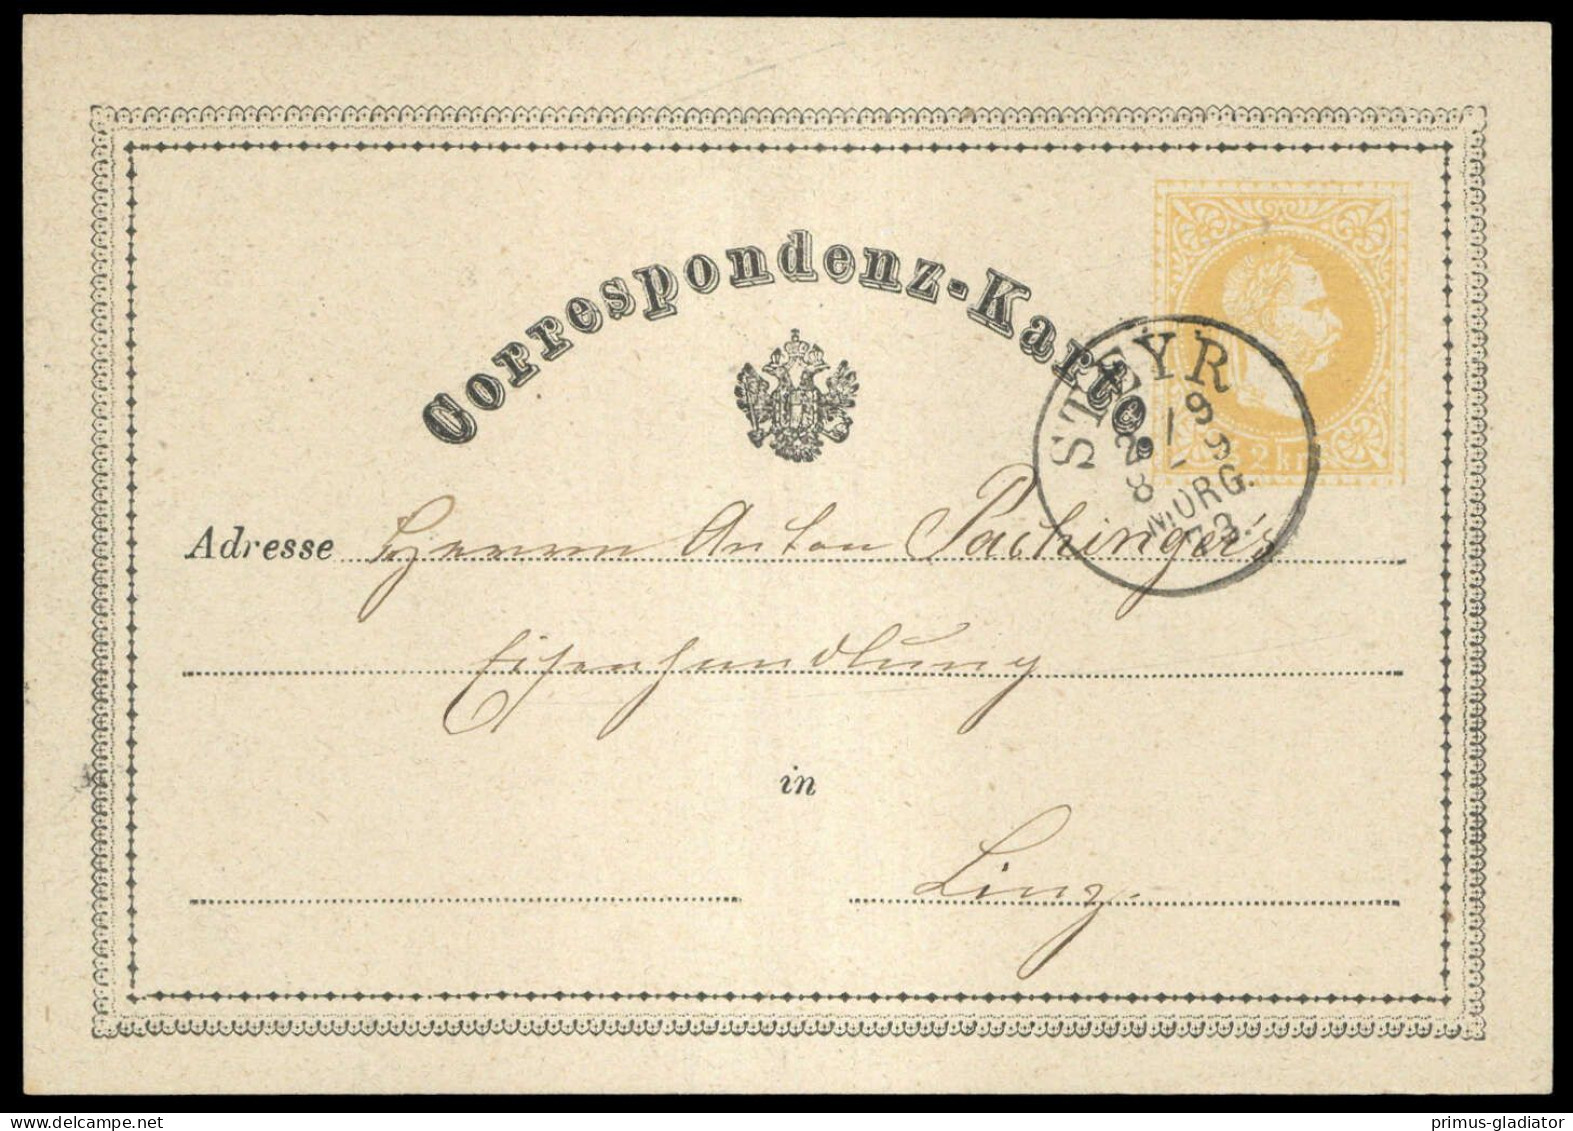 Correspondenz-Karte.
2 kr
STEYR
28/1 9
8-9
MORG.
73.
Adresse Herrn Anton Pachinger's
Eisenhandlung
in
Linz.
delcampe.net
primus-gladiator